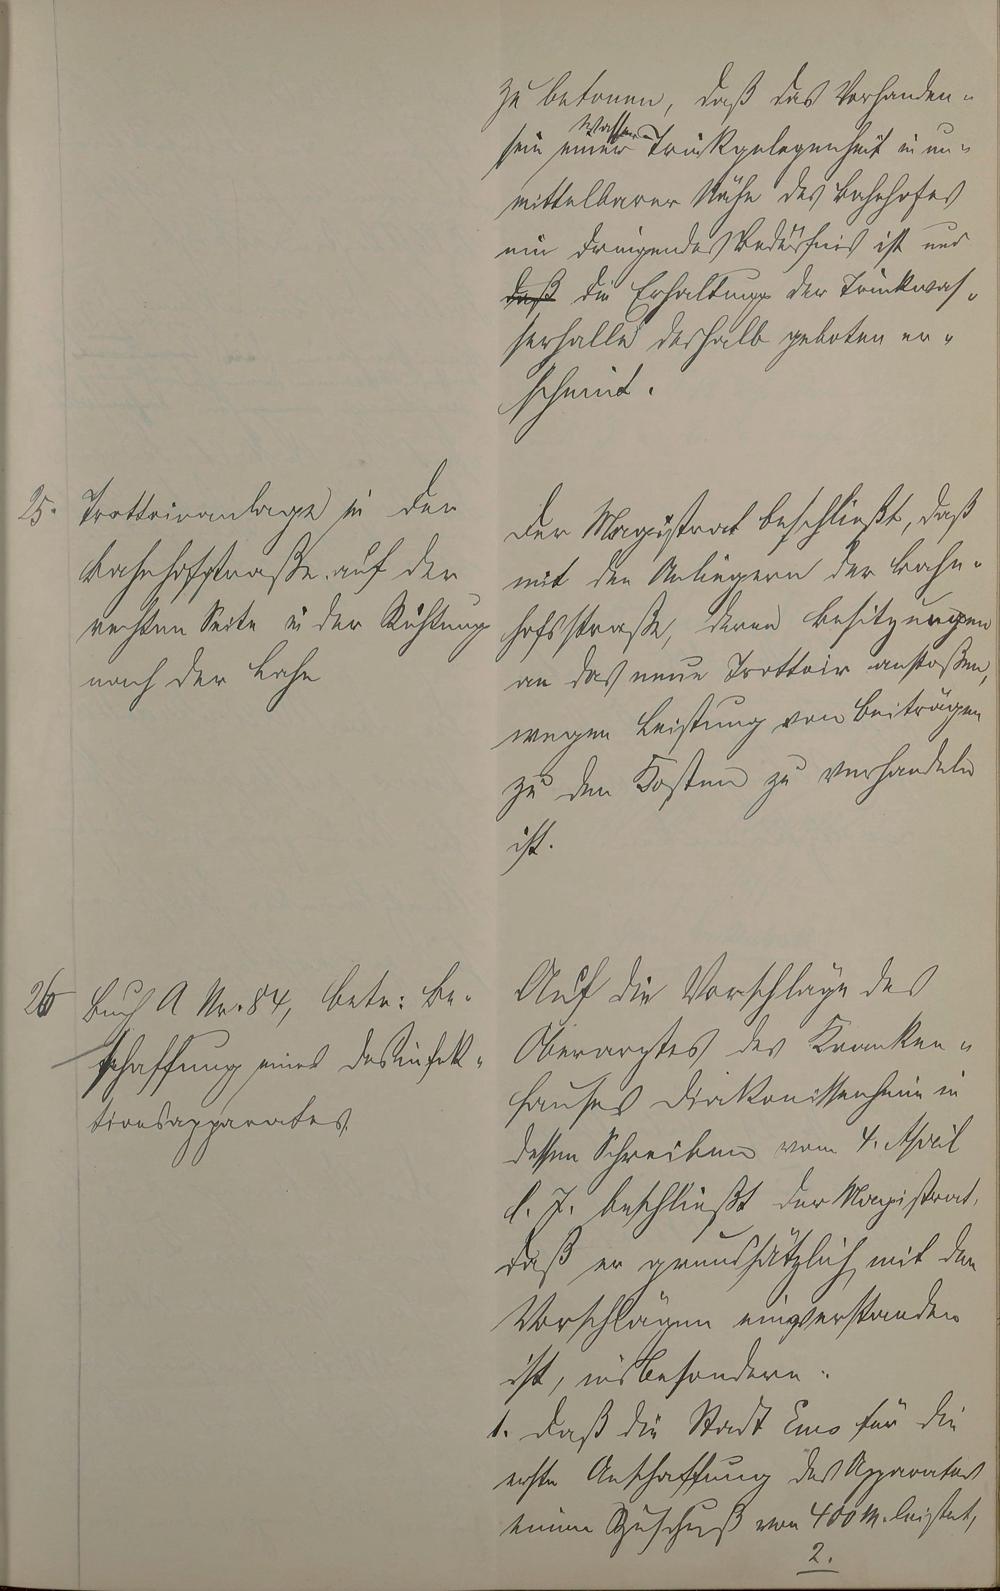 zu betonen, daß das Vorhanden-
sein einer Wasser-Trinkgelegenheit in un-
mittelbarer Nähe des Bahnhofes
ein dringendes Bedürfnis ist und
daß die Erhaltung der Trinkwas-
serhalle deshalb geboten er-
scheint.
25. Trottoiranlage in der
Bahnhofstraße auf der
rechten Seite in der Richtung
nach der Lahn
Der Magistrat beschließt, daß
mit den Anliegern der Bahn-
hofsstraße, deren Besitzungen
an das neue Trottoir anstoßen,
wegen Leistung von Beiträgen
zu den Kosten zu verhandeln
ist.
26 Buch A Nr. 84, betr: Be-
schaffung eines Desinfek-
tionsapparates
Auf die Vorschläge des
Oberarztes des Kranken-
hauses Diakonissenheim in
dessen Schreiben vom 4. April
l. J. beschließt der Magistrat,
daß er grundsätzlich mit den
Vorschlägen einverstanden
ist, insbesondere:
1. daß die Stadt Ems für die
erste Anschaffung des Apparates
einen Zuschuß von 400 M. leistet,
2.